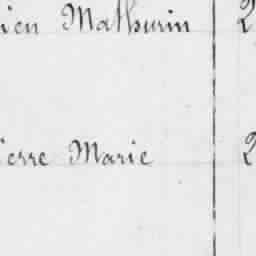 ien Mathurin 2
ierre Marie 2